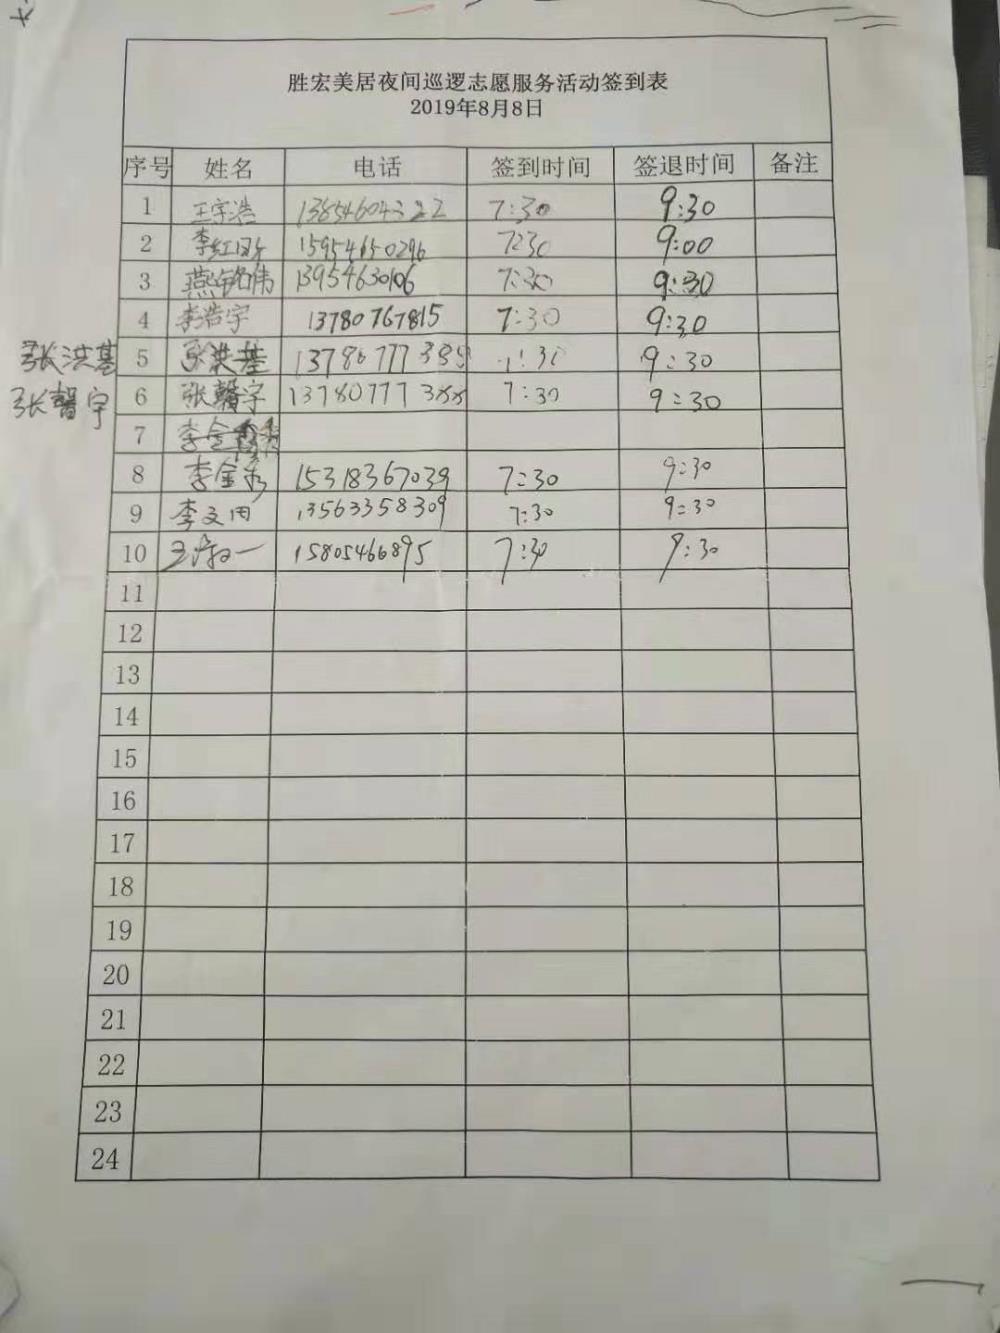 胜宏美居夜间巡逻志愿服务活动签到表
2019年8月8日
序号 姓名 电话 签到时间 签退时间 备注
1 王宇浩 13854604322 7:30 9:30
2 李红 15954650296 7:30 9:00
3 燕铭伟 13954630106 7:30 9:30
4 李浩宇 13780767815 7:30 9:30
张洪基 5 张洪基 13780777388 7:30 9:30
张馨宇 6 张馨宇 13780777388 7:30 9:30
7 李金秀
8 李金秀 15318367039 7:30 9:30
9 李文田 13563358309 7:30 9:30
10 王淑一 15805466895 7:30 9:30
11
12
13
14
15
16
17
18
19
20
21
22
23
24